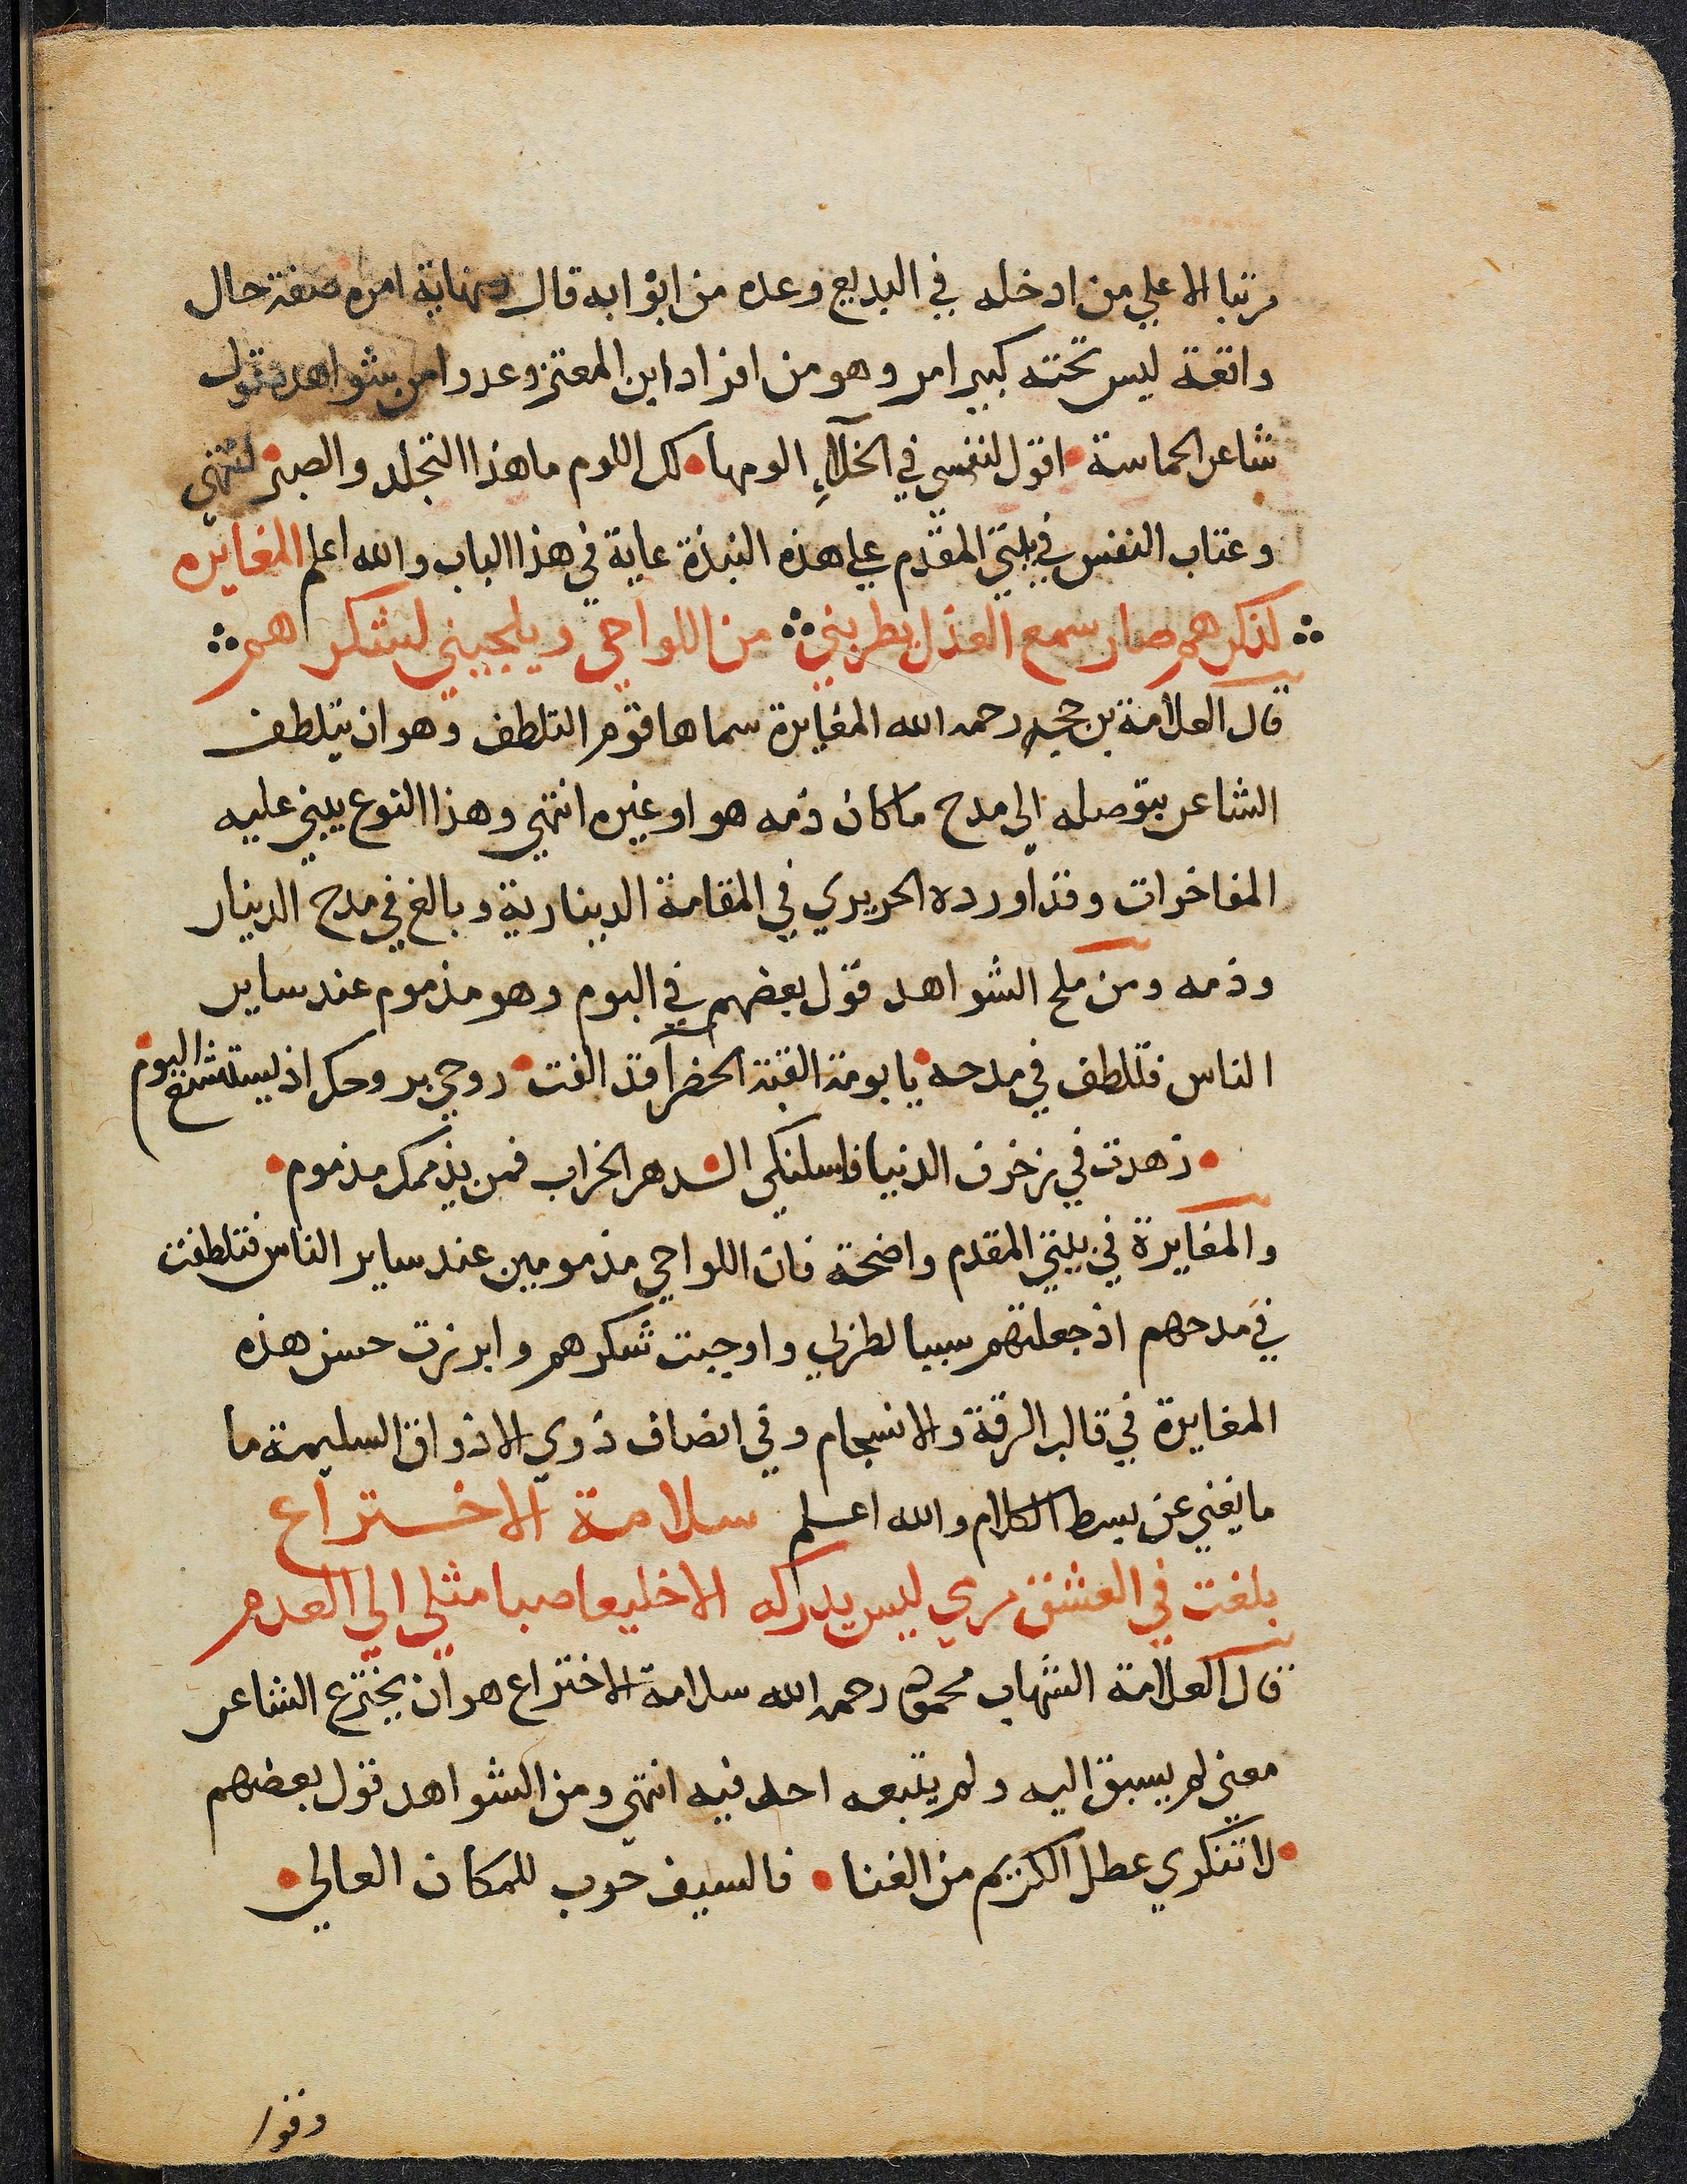 مرتبا الا علي من ادخله في البديع وعده من ابوابه قال ونهاية امره صفة حال
واقعة ليس تحته كبير امر وهو من افراد ابن المعتز وعدوا من شواهده قول
شاعر الحماسة • اقول لنفسي في الخلآءِ الومها • لك اللوم ما هذا التجلد والصبر • انتهي
وعتاب النفس في بيتي المقدم علي هذه النبذة غاية في هذا الباب والله اعلم المغايره
لذكرهم صار سمع العذل يطربني ∴ من اللواحي ويلجيني لشكرهم ∴
قال العلامة بن حجه رحمه الله المغايرة سماها قوم التلطف وهو ان يتلطف
الشاعر بتوصله الي مدح ما كان ذمه هو او غيره انتهي وهذا النوع يبني عليه
المفاخرات وقد اورده الحريري في المقامة الدينارية وبالغ في مدح الدينار
وذمه ومن ملح الشواهد قول بعضهم في البوم وهو مذموم عند ساير
الناس فتلطف في مدحه • يا بومة القبة الخضرآ قد الفت • روحي بروحك اذ يستشنع البوم •
• زهدت في زخرف الدنيا فاسلنكي الـ • ـدهر الخراب فمن يذممك مذموم •
والمغايرة في بيتي المقدم واضحة فان اللواحي مذمومين عند ساير الناس فتلطفت
في مدحهم اذ جعلتهم سببا لطربي واوجبت شكرهم وابرزت حسن هذه
المغايرة في قالب الرقة والانسجام وفي انصاف ذوي الاذواق السليمة ما
ما يغني عن بسط الكلام والله اعلم سلامة الاختراع
بلغت في العشق مرمي ليس يدركه الا خليعا صبا مثلي الي العدم
قال العلامة الشهاب محمود رحمه الله سلامة الاختراع هو ان يخترع الشاعر
معني لم يسبق اليه ولم يتبعه احد فيه انتهي ومن الشواهد قول بعضهم
• لا تنكري عطل الكريم من الغنا • فالسيف حرب للمكان العالي •
وقو/